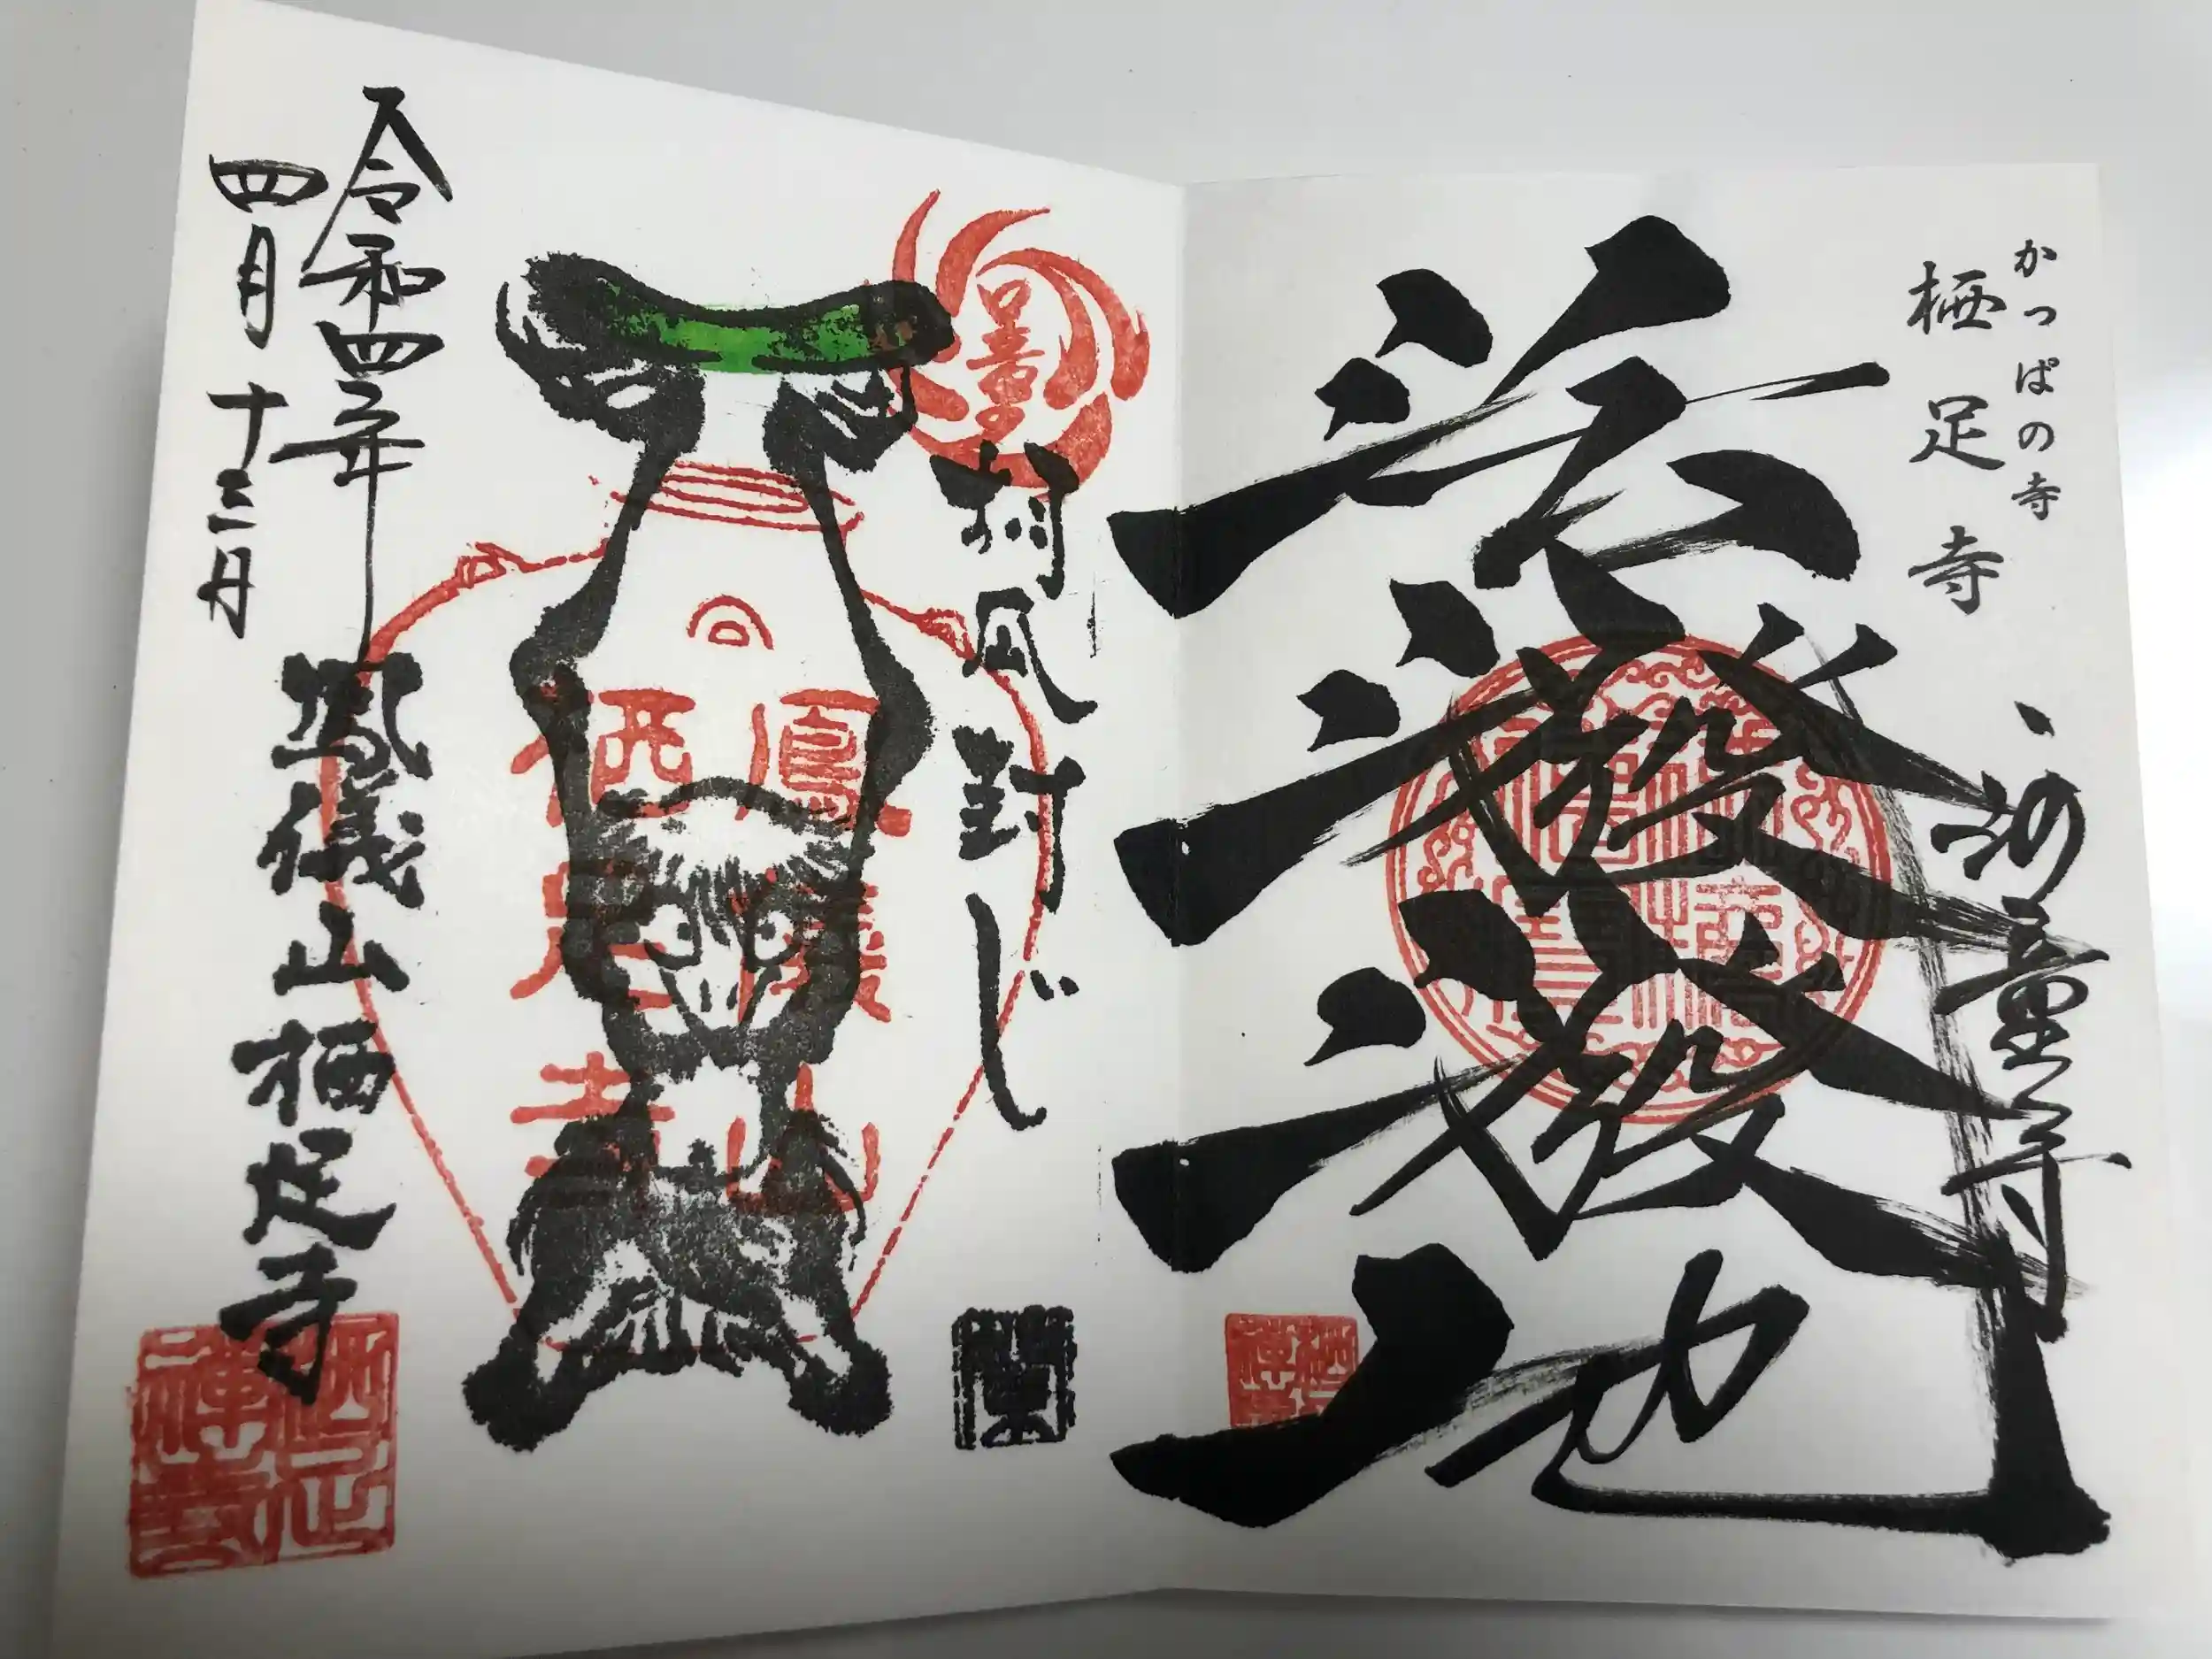 かっぱの寺
栖足寺
河童寺
活潑潑地
風封じ
鳳儀山
栖足寺
令和四年
四月十三日
鳳儀山栖足寺
栖足
禅寺